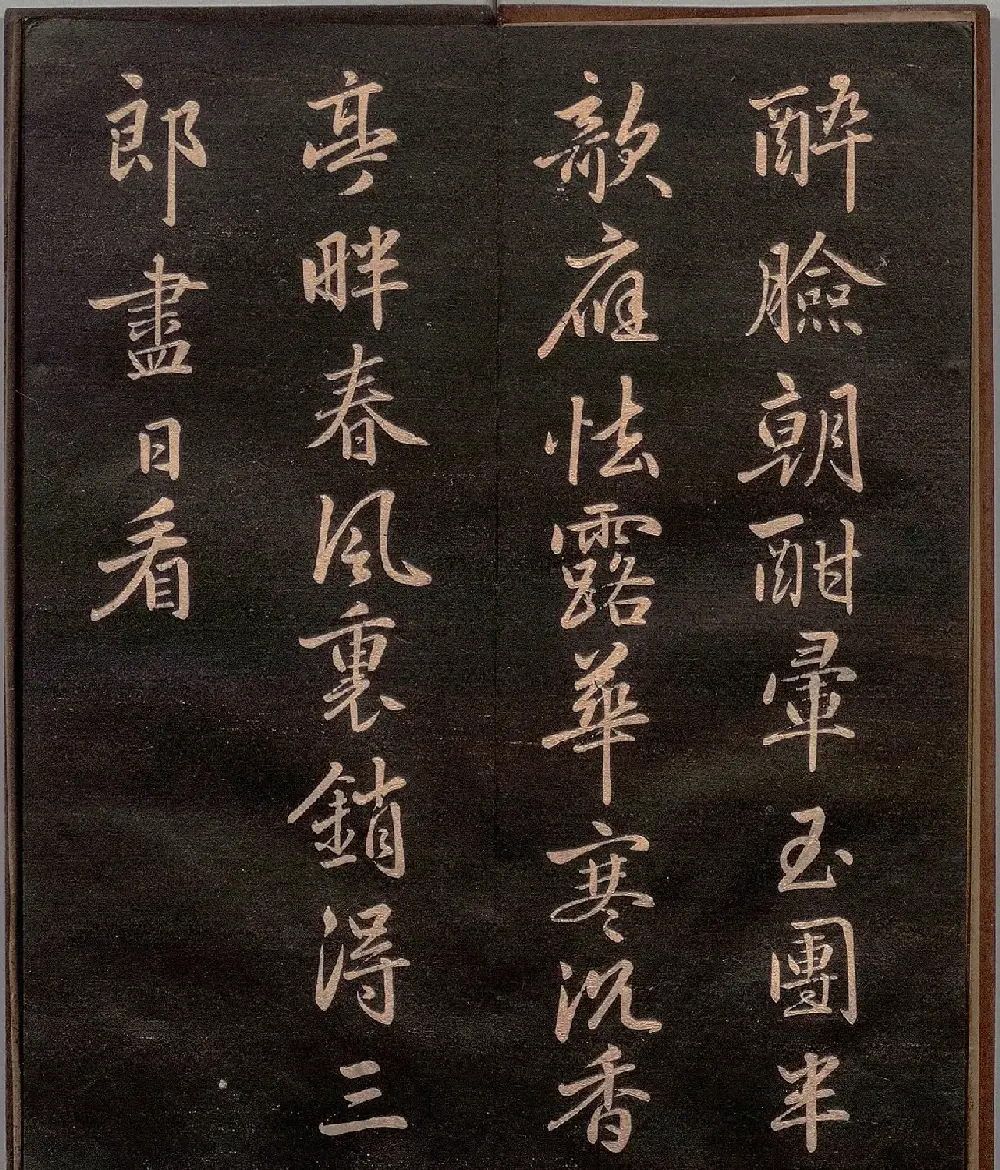 醉臉朝酣暈玉團半
欹應怯露華寒沉香
亭畔春風裏銷得三
郎盡日看